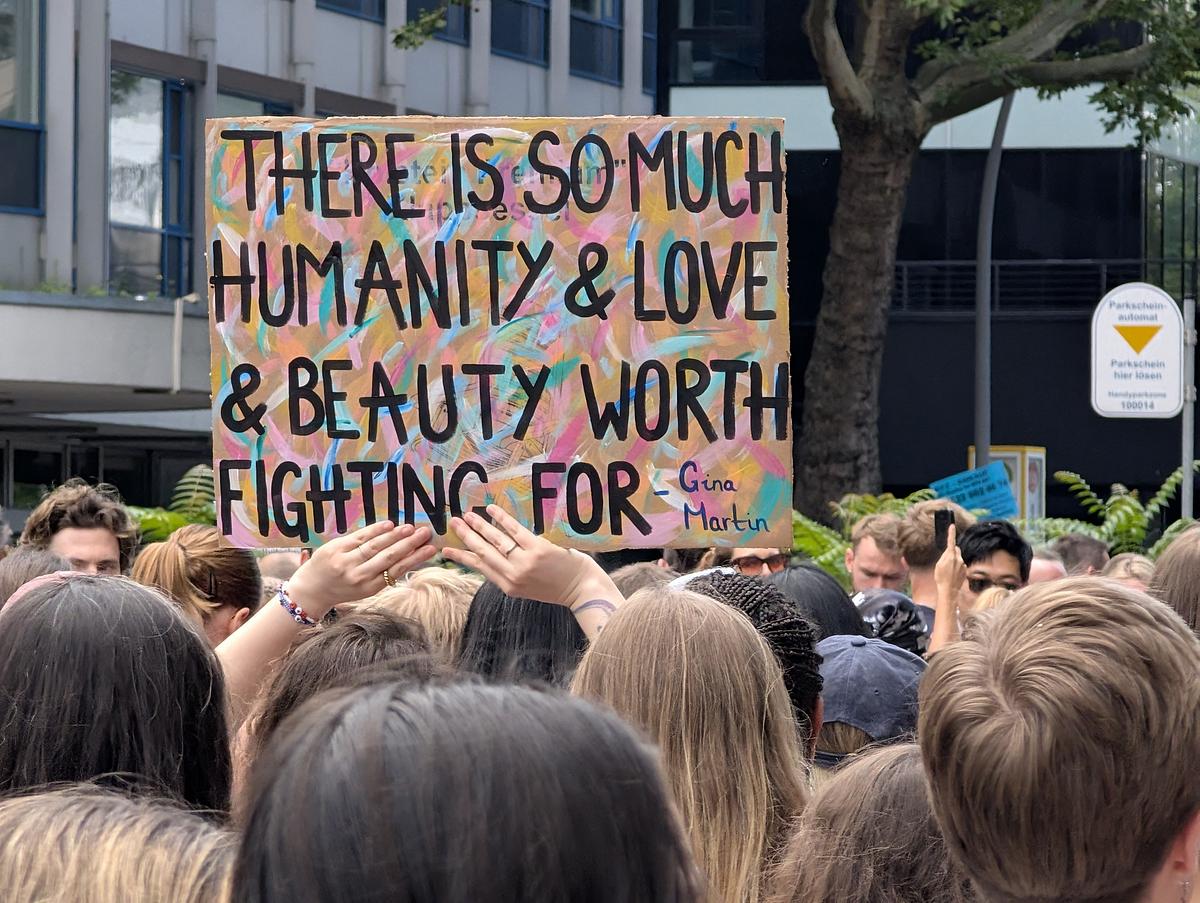 THERE IS SO MUCH
HUMANITY & LOVE
& BEAUTY WORTH
FIGHTING FOR
- Gina
Martin
Parkschein-
automat
Parkschein
hier lösen
Handyparkzone
100014